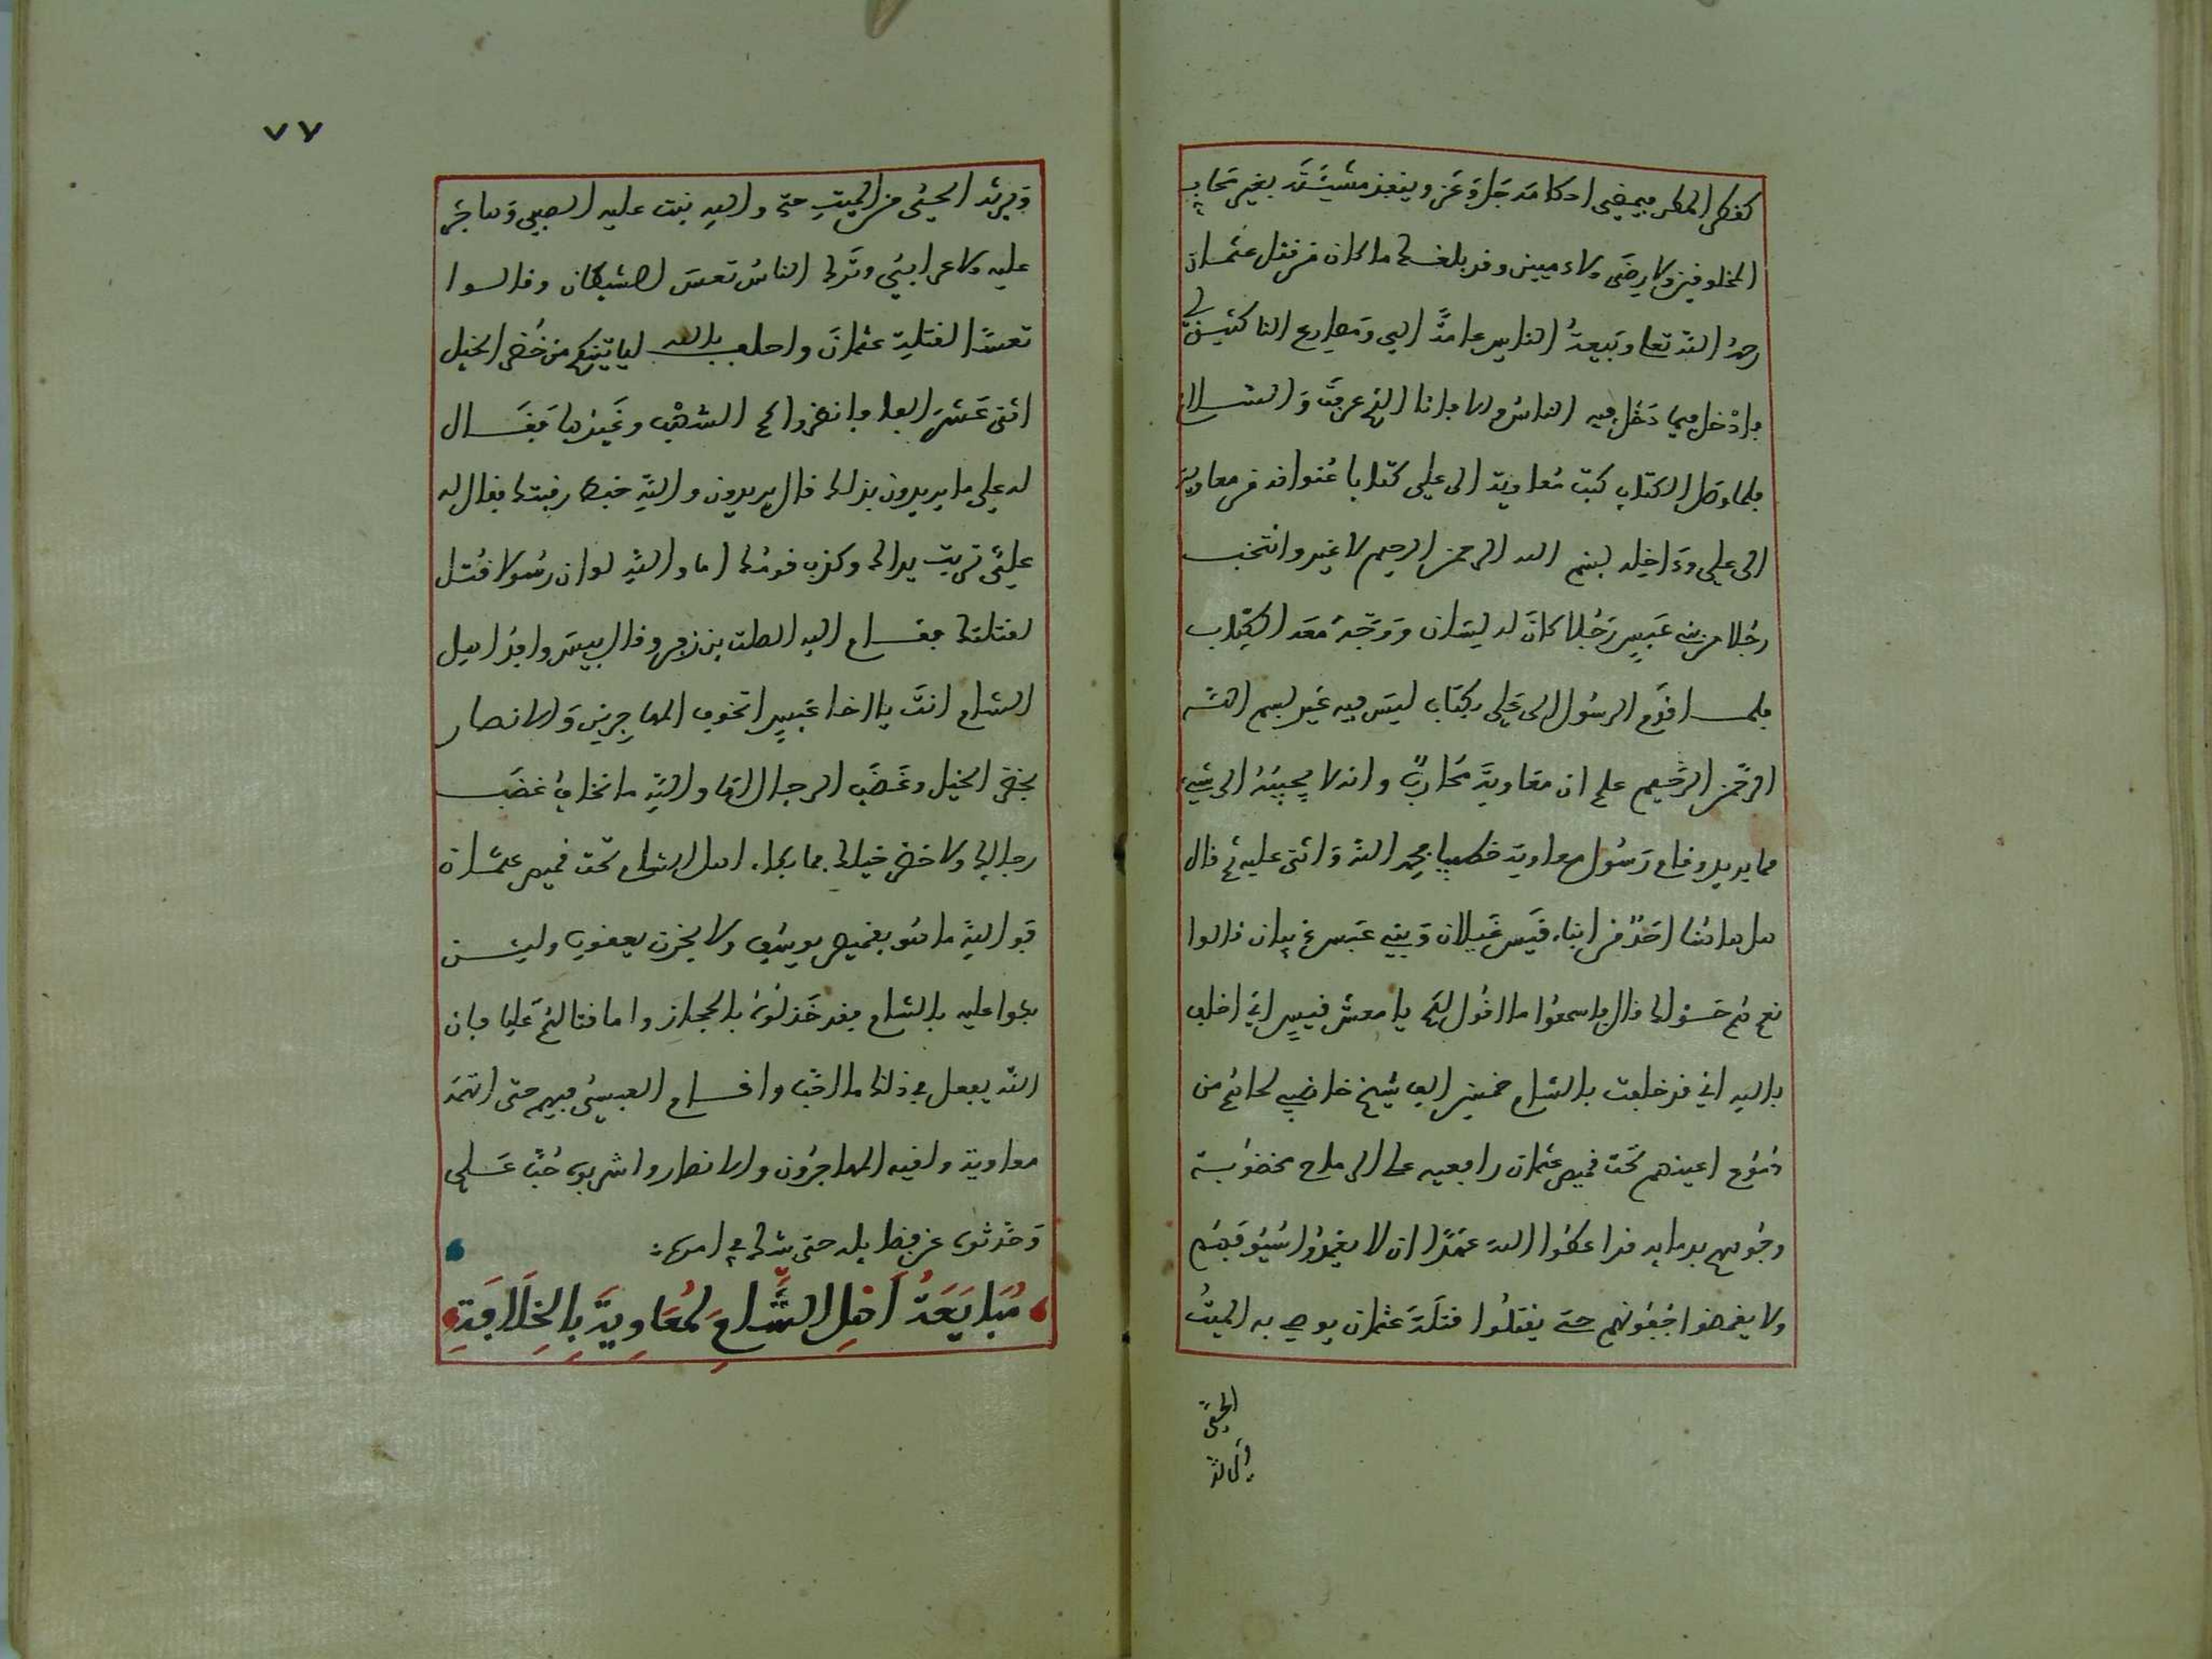 كقطر المطر فيمضي احكامه جل وعز وينفذ مشيئته بغير تحاب
المخلوفين ولا رضى الادميين وقد بلغك ما كان من قتل عثمان
رحمه الله تعا وبيعة الناس عامة الي ومصارع الناكثين لي
فادخل فيما دخل فيه الناس والا فانا الذي عرفت والسلام
فلما وصل الكتاب كتب معاوية الى علي كتابا عنوانه من معاوية
الى علي وداخله بسم الله الرحمن الرحيم لا غير وانتخب
رجلا من بني عبس رجلا كان له لسان ووجه معه الكتاب
فلما قدم الرسول الى علي بكتاب ليس فيه غير بسم الله
الرحمن الرحيم علم ان معاوية محارب وانه لا يجيبه الى شيء
مما يريد وقام رسول معاوية خطيبا فحمد الله واثنى عليه ثم قال
هل هاهنا احد من ابناء قيس غيلان وبني عبس ذبيان قالوا
نعم هم حولك قال فاسمعوا ما اقول لكم يا معشر قيس اني احلف
بالله اني قد خلفت بالشام خمسين الف شيخ خاضبي لحاهم من
دموع اعينهم تحت قميص عثمان رافعيه على الرماح مخضوبة
وجوههم بدمايه قد اعطوا الله عهدا ان لا يغمدوا سيوفهم
ولا يغمضوا جفونهم حتى يقتلوا قتلة عثمان يوصي به الميت
الحي
٧٧
ويرثه الحي من الميت حتى والله نبت عليه الصبي وهاجر
عليه الاعرابي وترك الناس تعس الشيطان وقالوا
تعسا لقتلة عثمان واحلف بالله لياتينكم من خضر الخيل
اثنى عشر الفا فانظروا كم الشهب وغيرها فقال
له علي ما يريدون بذلك قال يريدون والله خيط رقبتك فقال له
علي تربت يداك وكذب فوك اما والله لو ان رسولا قتل
لقتلتك فقام اليه الصلت بن زفر وقال بيس وافد اهل
الشام انت يا اخا عبس اتخوف المهاجرين والانصار
بخضر الخيل وغضب الرجال اما والله ما نخاف غضب
رجالك ولا خضر خيلك فما بكاء اهل الشام تحت قميص عثمان
فوالله ما هو بقميص يوسف ولا بحزن يعقوب ولين
بكوا عليه بالشام فقد خذلوه بالحجاز واما قتالهم عليا فان
الله يفعل في ذلك ما احب واقام العبسي فيهم حتى اتهمه
معاوية ولقيه المهاجرون والانصار واشربوه حب علي
وحدثوه عن فضايله حتى شك في امره
مبايعة اهل الشام لمعاوية بالخلافة